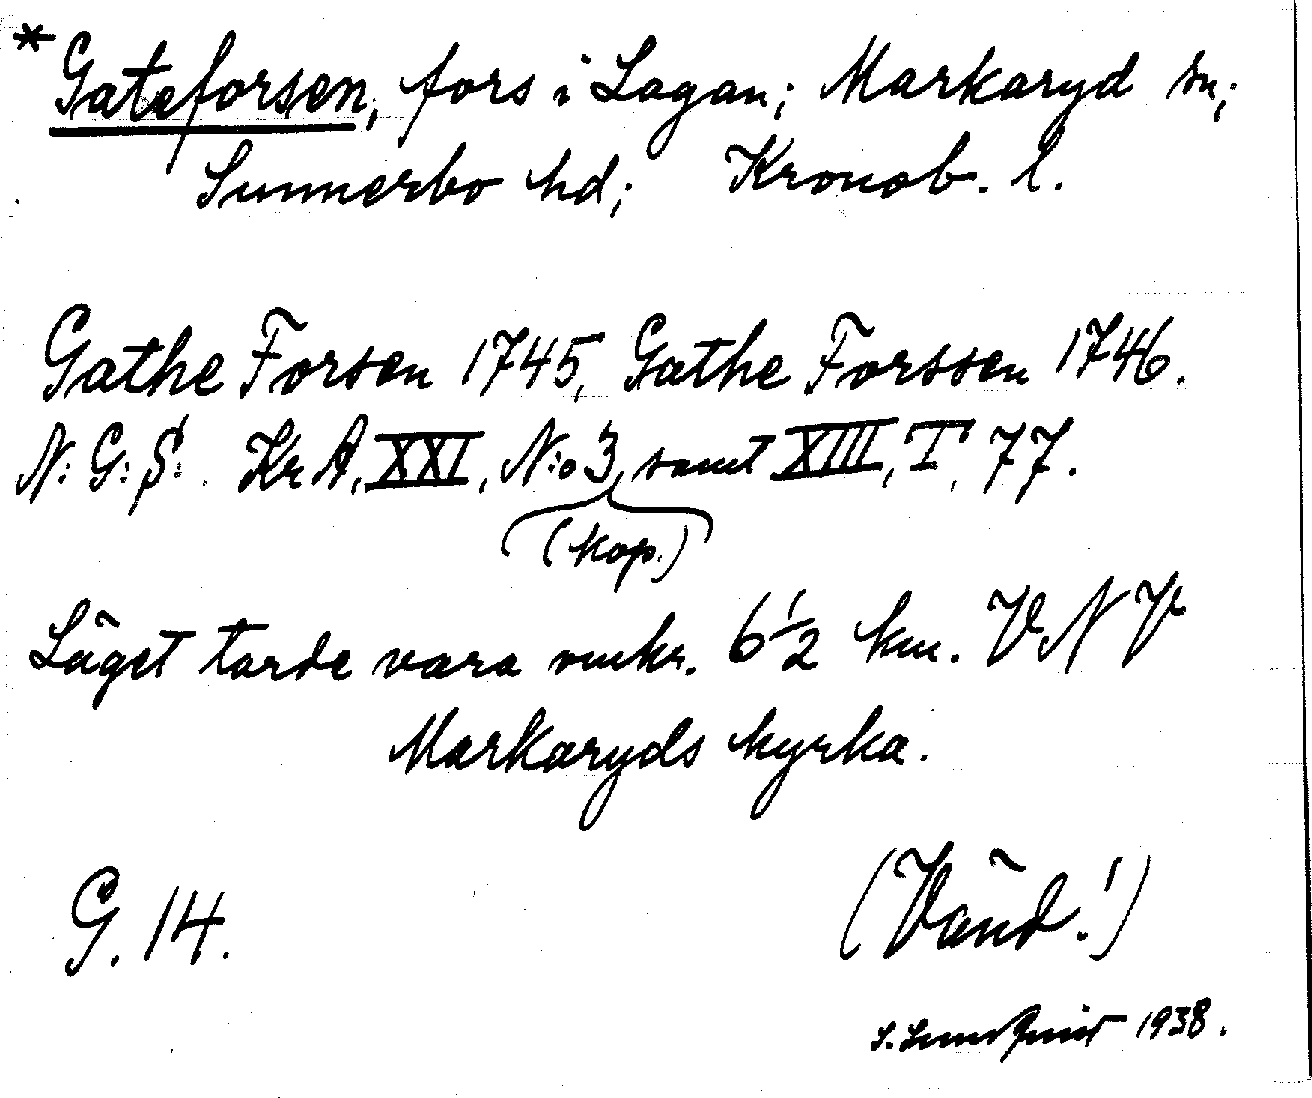 * Gateforsen, fors i Lagan; Markaryd sn;
Sunnerbo hd; Kronob. l.
Gathe Forsen 1745, Gathe Forssen 1746.
N: G: S: Kr A, XXI, N:o 3, samt XIII, I, 77.
(kop.)
Läget torde vara omkr. 6 1/2 km. VNV
Markaryds kyrka.
G. 14.
(Vänd!)
S. Lundquist 1938.